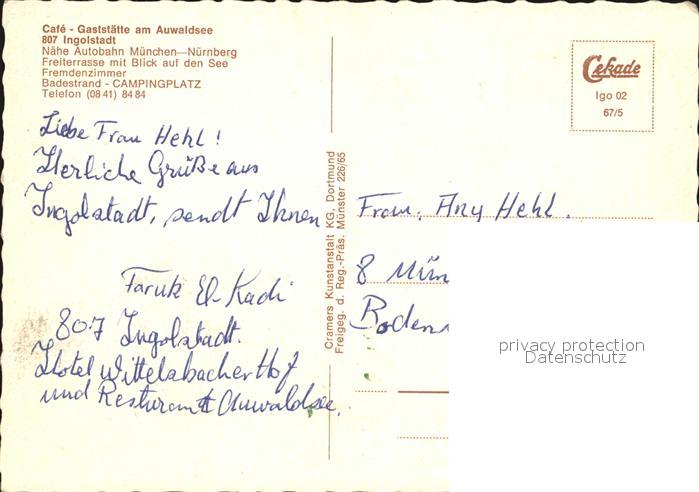 Café - Gaststätte am Auwaldsee
807 Ingolstadt
Nähe Autobahn München—Nürnberg
Freiterrasse mit Blick auf den See
Fremdenzimmer
Badestrand - CAMPINGPLATZ
Telefon (08 41) 84 84
Liebe Frau Hehl!
Herliche Grüße aus
Ingolstadt, sendt Ihnen
Faruk El-Kadi
807 Ingolstadt.
Hotel Wittelsbacher Hof
und Resturamt Auwaldsee.
Cramers Kunstanstalt KG, Dortmund
Freigeg. d. Reg.-Präs. Münster 226/65
Cekade
Igo 02
67/5
Frau, Any Hehl.
8 Mün
Roden
privacy protection
Datenschutz